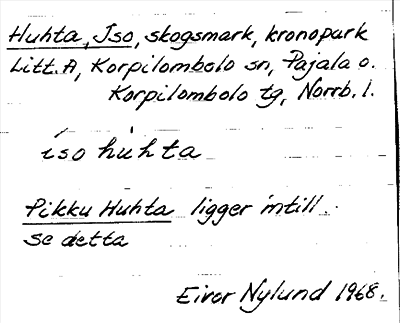 Huhta, Iso, skogsmark, kronopark
Litt. A, Korpilombolo sn, Pajala o.
Korpilombolo tg, Norrb. l.
íso húhta
Pikku Huhta ligger intill.
Se detta
Eivor Nylund 1968.